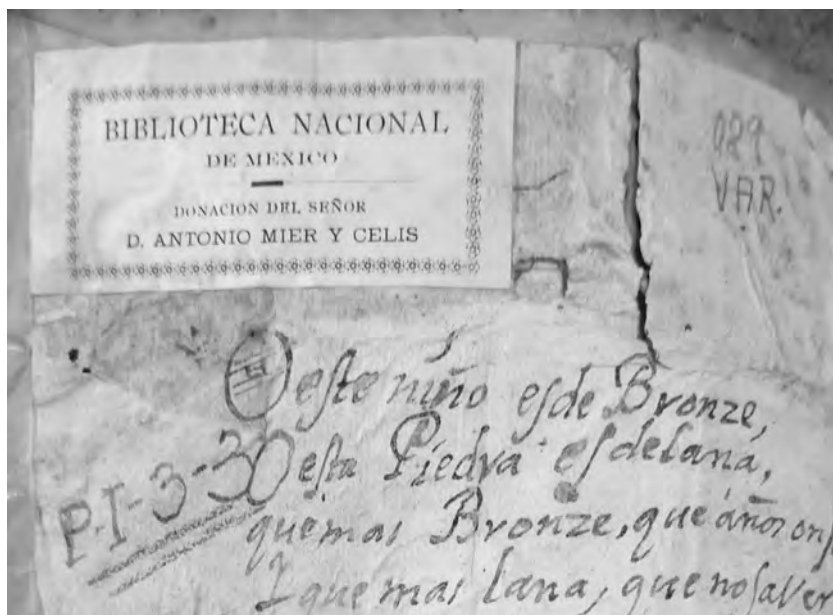 BIBLIOTECA NACIONAL
DE MEXICO
DONACION DEL SEÑOR
D. ANTONIO MIER Y CELIS
029
VAR.
O este niño es de Bronze,
O esta Piedra es de lana,
P-I-3-3
que mas Bronze, que años onz
I que mas lana, que no saver